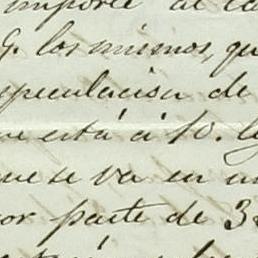 importe al
G. los mismos, qu
especulacion de
ve está á 10.
que se va en un
or parte de 3